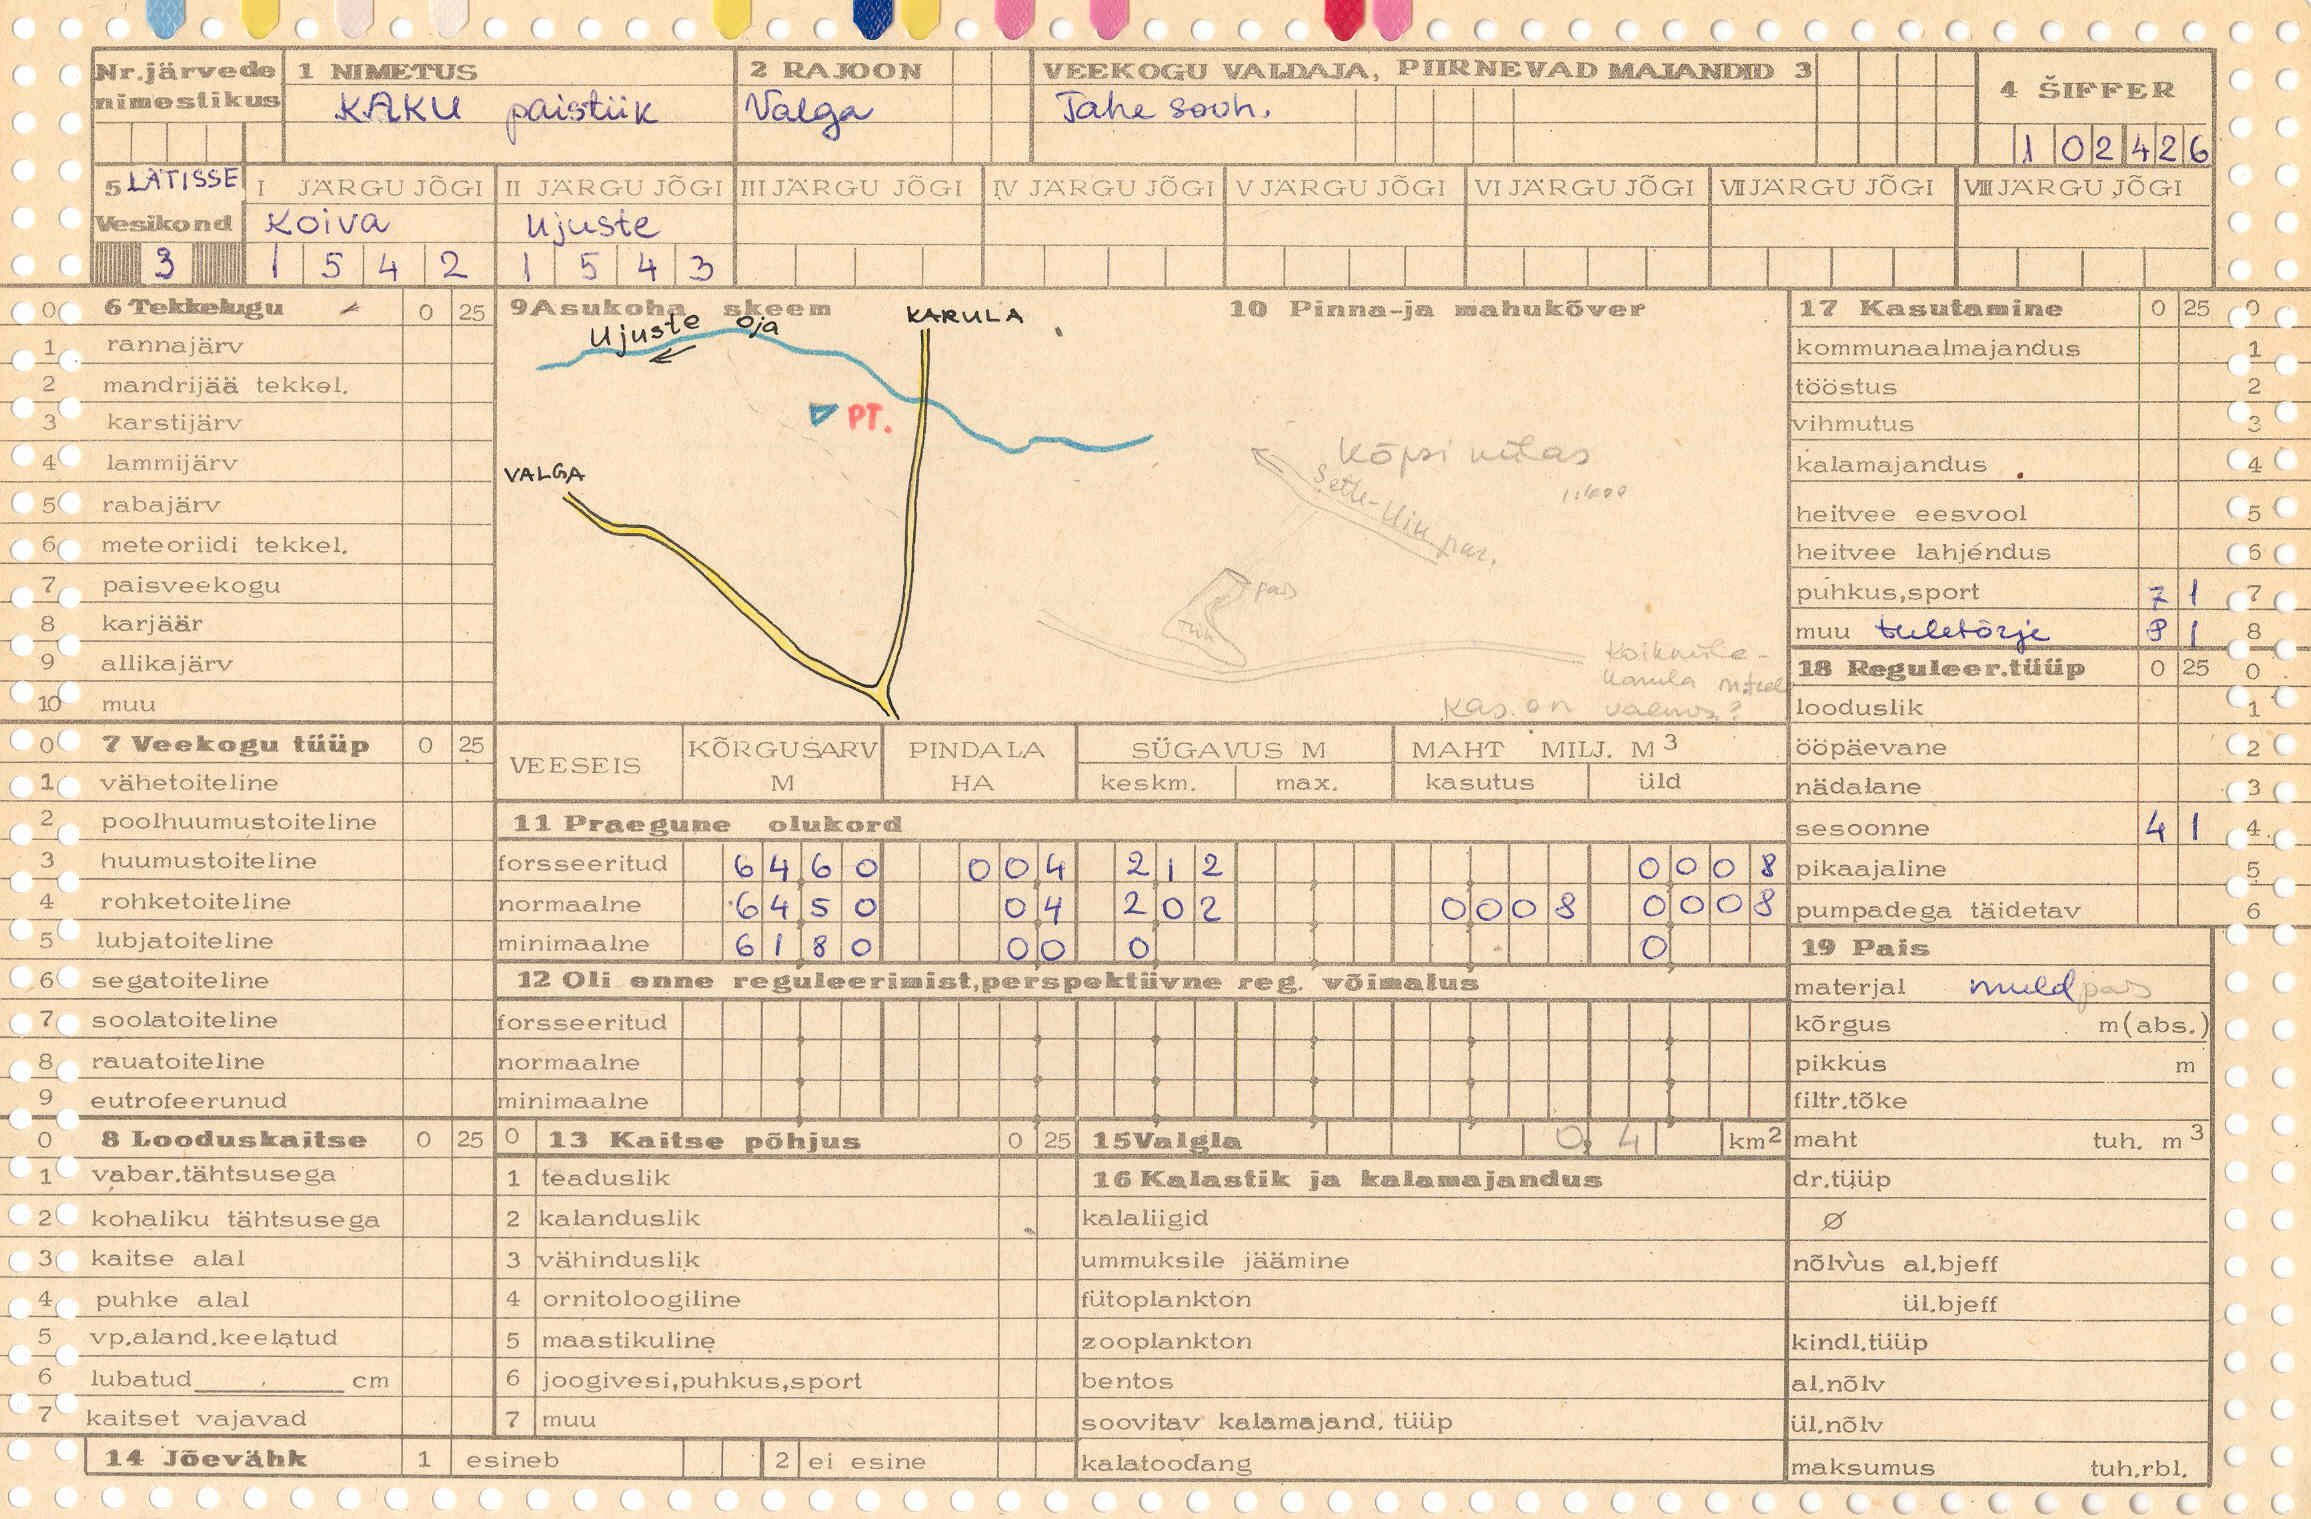 Nr.järvede nimestikus
1 NIMETUS
KAKU paistiik
2 RAJOON
Valga
VEEKOGU VALDAJA, PIIRNEVAD MAJANDID 3
Tahe sovh.
4 ŠIFFER
1 0 2 4 2 6
5 LÄTISSE
Vesikond
3
I JÄRGU JÕGI
Koiva
1 5 4 2
II JÄRGU JÕGI
Ujuste
1 5 4 3
III JÄRGU JÕGI
IV JÄRGU JÕGI
V JÄRGU JÕGI
VI JÄRGU JÕGI
VII JÄRGU JÕGI
VIII JÄRGU JÕGI
0 6 Tekkelugu 0 25
1 rannajärv
2 mandrijää tekkel.
3 karstijärv
4 lammijärv
5 rabajärv
6 meteoriidi tekkel.
7 paisveekogu
8 karjäär
9 allikajärv
10 muu
0 7 Veekogu tüüp 0 25
1 vähetoiteline
2 poolhuumustoiteline
3 huumustoiteline
4 rohketoiteline
5 lubjatoiteline
6 segatoiteline
7 soolatoiteline
8 rauatoiteline
9 eutrofeerunud
0 8 Looduskaitse 0 25
1 vabar.tähtsusega
2 kohaliku tähtsusega
3 kaitse alal
4 puhke alal
5 vp.aland.keelatud
6 lubatud cm
7 kaitset vajavad
14 Jõevähk 1 esineb 2 ei esine
9 Asukoha skeem
Ujuste oja
KARULA
PT.
VALGA
10 Pinna-ja mahukõver
Kõpsi külas
pais
Koikküla-
Karula
Kas on valmis?
VEESEIS
KÕRGUSARV M
PINDALA HA
SÜGAVUS M
keskm. max.
MAHT MILJ. M3
kasutus üld
11 Praegune olukord
forsseeritud 6 4 6 0 0 0 4 2 1 2 0 0 0 8
normaalne 6 4 5 0 0 4 2 0 2 0 0 0 8 0 0 0 8
minimaalne 6 1 8 0 0 0 0 0
12 Oli enne reguleerimist,perspektiivne reg. võimalus
forsseeritud
normaalne
minimaalne
0 13 Kaitse põhjus 0 25
1 teaduslik
2 kalanduslik
3 vähinduslik
4 ornitoloogiline
5 maastikuline
6 joogivesi,puhkus,sport
7 muu
15 Valgla 0,4 km2
16 Kalastik ja kalamajandus
kalaliigid
ummuksile jäämine
fütoplankton
zooplankton
bentos
soovitav kalamajand. tüüp
kalatoodang
17 Kasutamine 0 25 0
kommunaalmajandus 1
tööstus 2
vihmutus 3
kalamajandus 4
heitvee eesvool 5
heitvee lahjendus 6
puhkus,sport 7 1 7
muu tuletõrje 8 1 8
18 Reguleer.tüüp 0 25 0
looduslik 1
ööpäevane 2
nädalane 3
sesoonne 4 1 4
pikaajaline 5
pumpadega täidetav 6
19 Pais
materjal muldpais
kõrgus m(abs.)
pikkus m
filtr.tõke
maht tuh. m3
dr.tüüp
Ø
nõlvus al.bjeff
ül.bjeff
kindl.tüüp
al.nõlv
ül.nõlv
maksumus tuh.rbl.